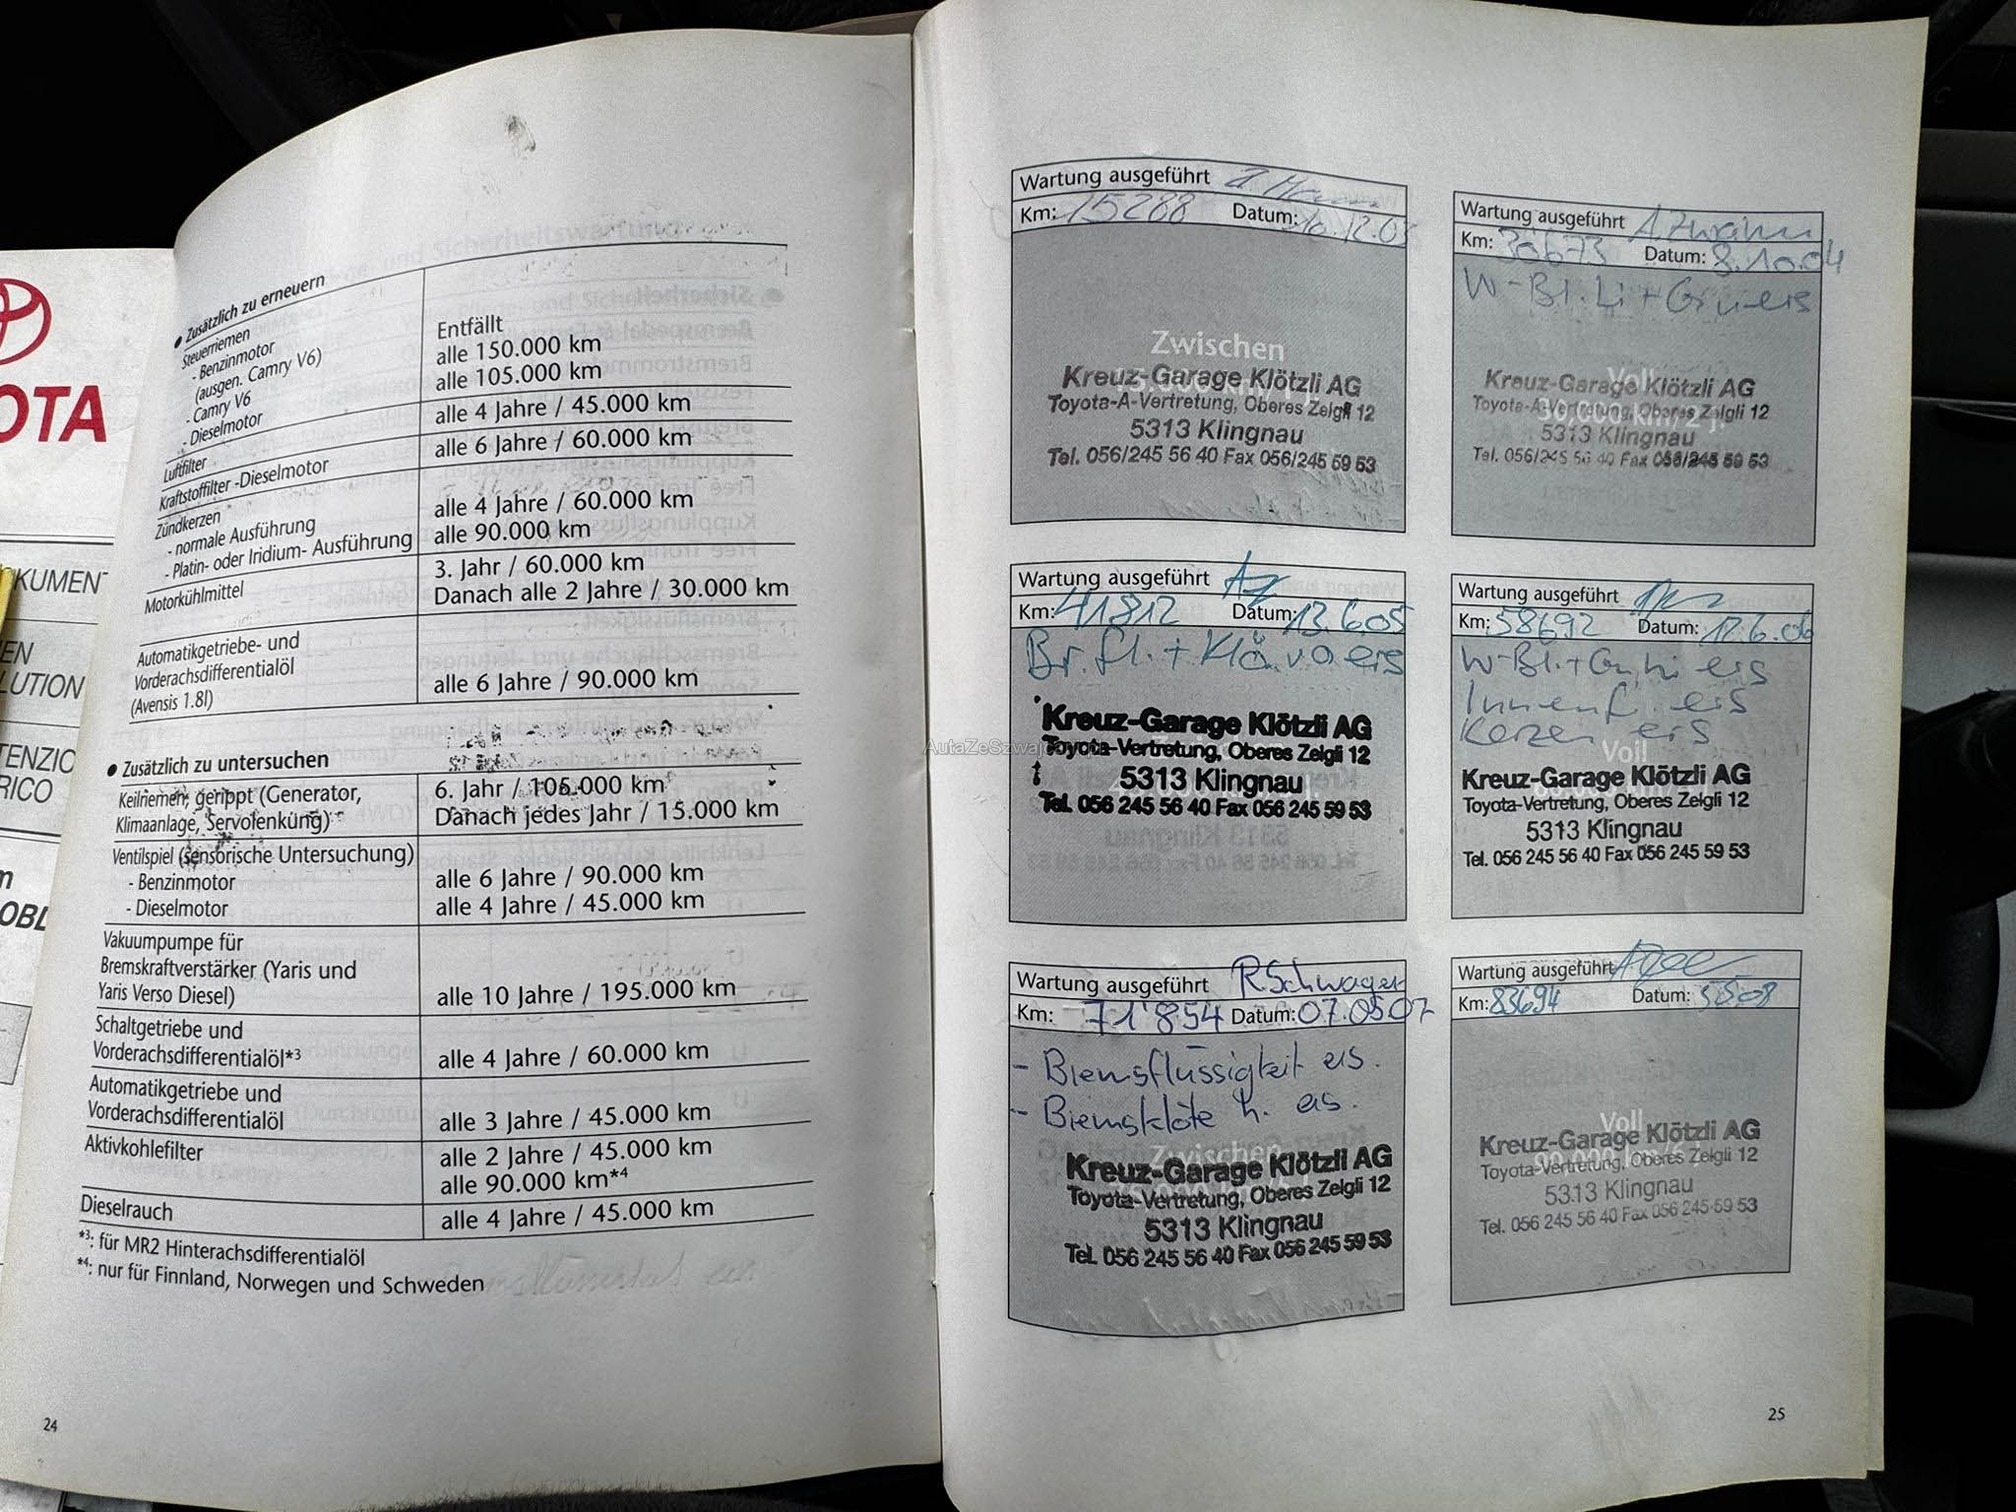 OTA
KUMENT
EN
LUTION
TENZIO
RICO
OBL
● Zusätzlich zu erneuern
Steuerriemen
- Benzinmotor
(ausgen. Camry V6)
Entfällt
- Camry V6
alle 150.000 km
- Dieselmotor
alle 105.000 km
Luftfilter
alle 4 Jahre / 45.000 km
Kraftstoffilter -Dieselmotor
alle 6 Jahre / 60.000 km
Zündkerzen
- normale Ausführung
alle 4 Jahre / 60.000 km
- Platin- oder Iridium- Ausführung
alle 90.000 km
Motorkühlmittel
3. Jahr / 60.000 km
Danach alle 2 Jahre / 30.000 km
Automatikgetriebe- und
Vorderachsdifferentialöl
(Avensis 1.8l)
alle 6 Jahre / 90.000 km
● Zusätzlich zu untersuchen
Keilriemen, gerippt (Generator,
Klimaanlage, Servolenkung)
6. Jahr / 105.000 km
Danach jedes Jahr / 15.000 km
Ventilspiel (sensorische Untersuchung)
- Benzinmotor
alle 6 Jahre / 90.000 km
- Dieselmotor
alle 4 Jahre / 45.000 km
Vakuumpumpe für
Bremskraftverstärker (Yaris und
Yaris Verso Diesel)
alle 10 Jahre / 195.000 km
Schaltgetriebe und
Vorderachsdifferentialöl*3
alle 4 Jahre / 60.000 km
Automatikgetriebe und
Vorderachsdifferentialöl
alle 3 Jahre / 45.000 km
Aktivkohlefilter
alle 2 Jahre / 45.000 km
alle 90.000 km*4
Dieselrauch
alle 4 Jahre / 45.000 km
*3: für MR2 Hinterachsdifferentialöl
*4: nur für Finnland, Norwegen und Schweden
24
Wartung ausgeführt
Km: 15288 Datum: 10.12.03
Zwischen
Kreuz-Garage Klötzli AG
Toyota-A-Vertretung, Oberes Zelgli 12
5313 Klingnau
Tel. 056/245 56 40 Fax 056/245 59 53
Wartung ausgeführt
Km: 30673 Datum: 8.10.04
W-Bl. Li + Gr. v ers
Voll
Kreuz-Garage Klötzli AG
Toyota-A-Vertretung, Oberes Zelgli 12
5313 Klingnau
Tel. 056/245 56 40 Fax 056/245 59 53
Wartung ausgeführt
Km: 41812 Datum: 13.6.05
Br. fl. + Klö. v o ers
Kreuz-Garage Klötzli AG
Toyota-Vertretung, Oberes Zelgli 12
5313 Klingnau
Tel. 056 245 56 40 Fax 056 245 59 53
Wartung ausgeführt
Km: 58692 Datum: 12.6.06
W-Bl. + Gr. hi ers
Innenf. ers
Kerzen ers
Voll
Kreuz-Garage Klötzli AG
Toyota-Vertretung, Oberes Zelgli 12
5313 Klingnau
Tel. 056 245 56 40 Fax 056 245 59 53
Wartung ausgeführt R Schwager
Km: 71'854 Datum: 07.05.07
- Bremsflüssigkeit ers.
- Bremsklöte h. ers.
Zwischen
Kreuz-Garage Klötzli AG
Toyota-Vertretung, Oberes Zelgli 12
5313 Klingnau
Tel. 056 245 56 40 Fax 056 245 59 53
Wartung ausgeführt
Km: 83694 Datum: 5.5.08
Voll
Kreuz-Garage Klötzli AG
Toyota-Vertretung, Oberes Zelgli 12
5313 Klingnau
Tel. 056 245 56 40 Fax 056 245 59 53
25